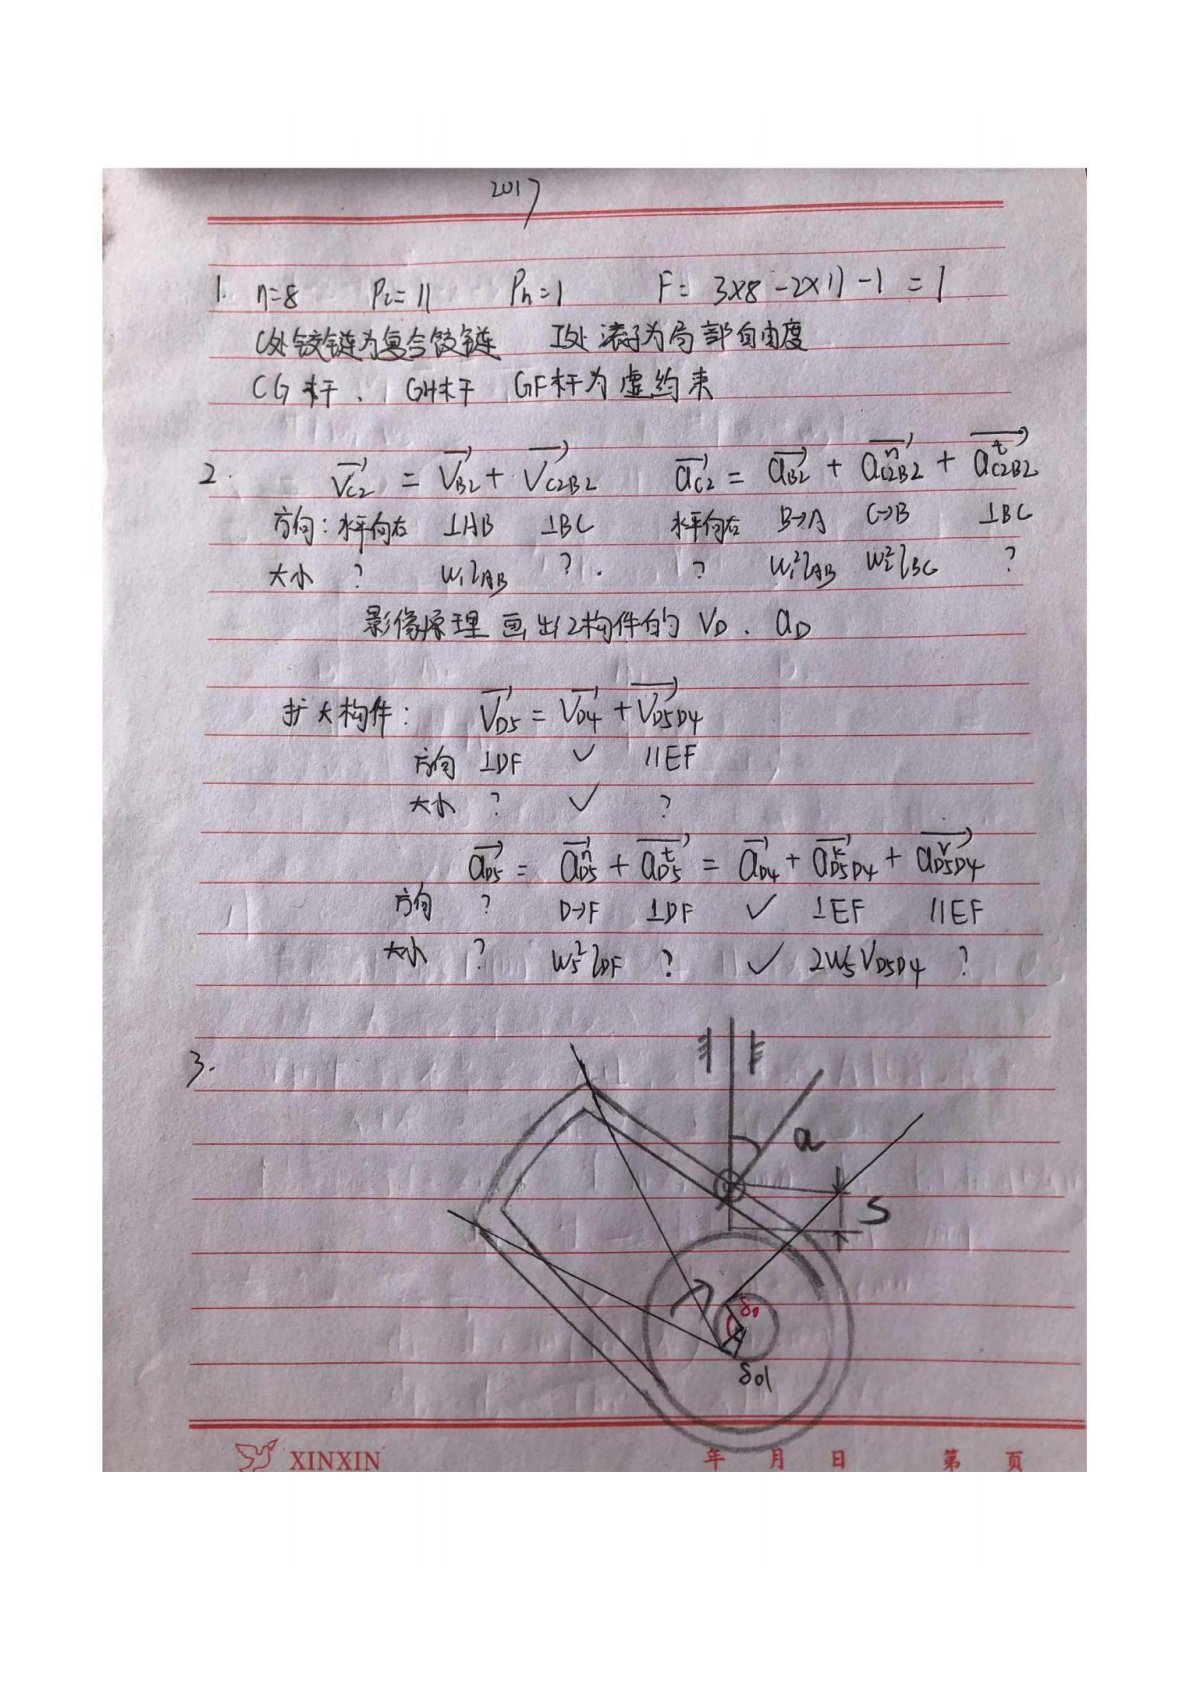 2017
1. n=8 PL=11 Ph=1 F= 3×8-2×11-1=1
C处铰链为复合铰链 I处滚子为局部自由度
CG杆、GH杆 GF杆为虚约束
2. VC2 = VB2 + VC2B2 aC2 = aB2 + a^nC2B2 + a^tC2B2
方向:水平向右 ⊥AB ⊥BC 水平向右 B→A C→B ⊥BC
大小 ? W1lAB ?. ? W1²lAB W2²lBC ?
影像原理画出2构件的VD、aD
扩大构件: VD5 = VD4 + VD5D4
方向 ⊥DF ✓ ∥EF
大小 ? ✓ ?
aD5 = a^nD5 + a^tD5 = aD4 + a^kD5D4 + a^rD5D4
方向 ? D→F ⊥DF ✓ ⊥EF ∥EF
大小 ? W5²lDF ? ✓ 2W5VD5D4 ?
3.
α
S
δ0
A
δ01
XINXIN 年 月 日 第 页